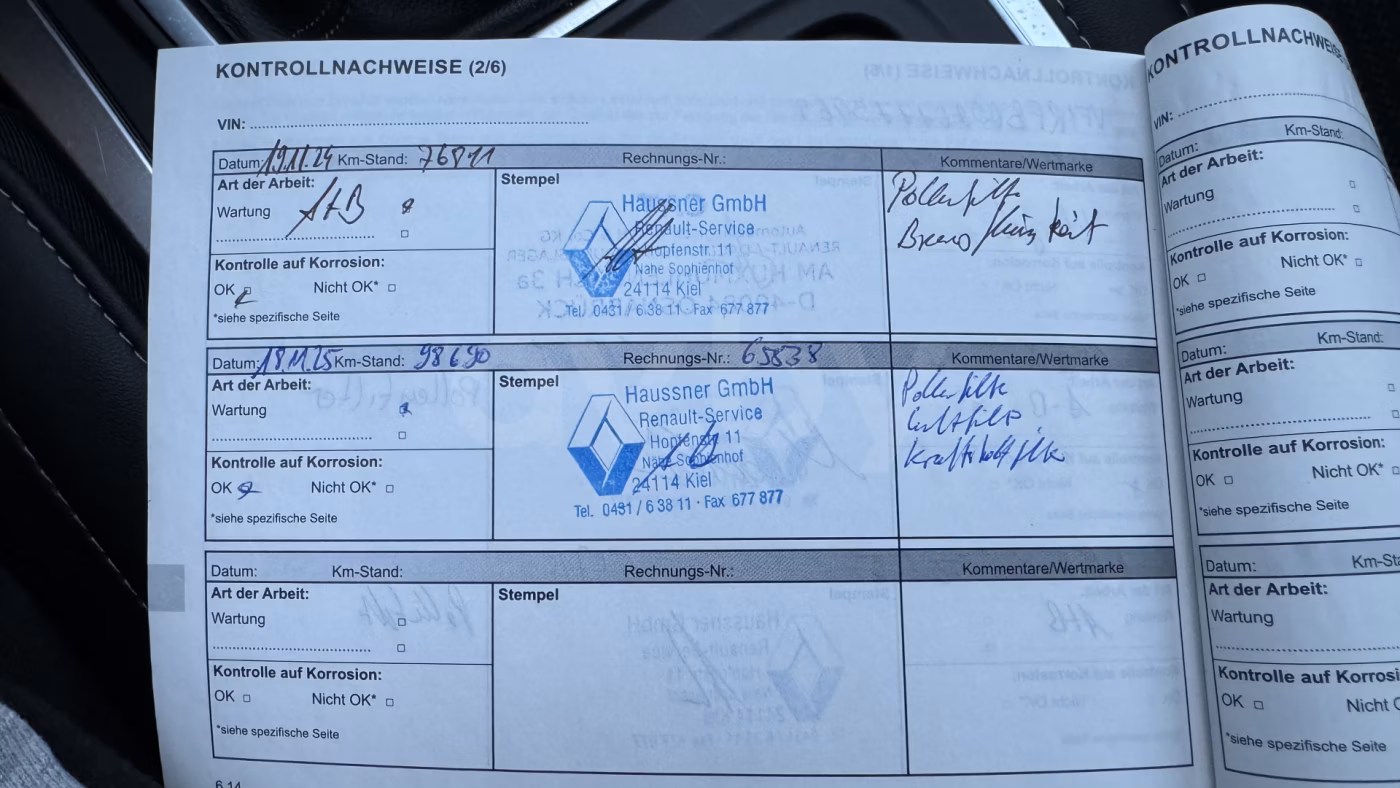 KONTROLLNACHWEISE (2/6)
VIN:
Datum: 19.11.24 Km-Stand: 76811 Rechnungs-Nr.: Kommentare/Wertmarke
Art der Arbeit: Stempel
Wartung A+B
Kontrolle auf Korrosion:
OK Nicht OK*
*siehe spezifische Seite
Haussner GmbH
Renault-Service
Hopfenstr. 11
Nähe Sophienhof
24114 Kiel
Tel. 0431 / 6 38 11 · Fax 677 877
Pollenfilter
Datum: 18.11.25 Km-Stand: 98690 Rechnungs-Nr.: 65838 Kommentare/Wertmarke
Art der Arbeit: Stempel
Wartung
Kontrolle auf Korrosion:
OK Nicht OK*
*siehe spezifische Seite
Haussner GmbH
Renault-Service
Hopfenstr. 11
Nähe Sophienhof
24114 Kiel
Tel. 0431 / 6 38 11 · Fax 677 877
Pollenfilter
Luftfilter
Kraftstofffilter
Datum: Km-Stand: Rechnungs-Nr.: Kommentare/Wertmarke
Art der Arbeit: Stempel
Wartung
Kontrolle auf Korrosion:
OK Nicht OK*
*siehe spezifische Seite
6.14
KONTROLLNACHWEISE
VIN:
Datum: Km-Stand:
Art der Arbeit:
Wartung
Kontrolle auf Korrosion:
OK Nicht OK*
*siehe spezifische Seite
Datum: Km-Stand:
Art der Arbeit:
Wartung
Kontrolle auf Korrosion:
OK Nicht OK*
*siehe spezifische Seite
Datum: Km-Sta
Art der Arbeit:
Wartung
Kontrolle auf Korrosi
OK Nicht O
*siehe spezifische Seite